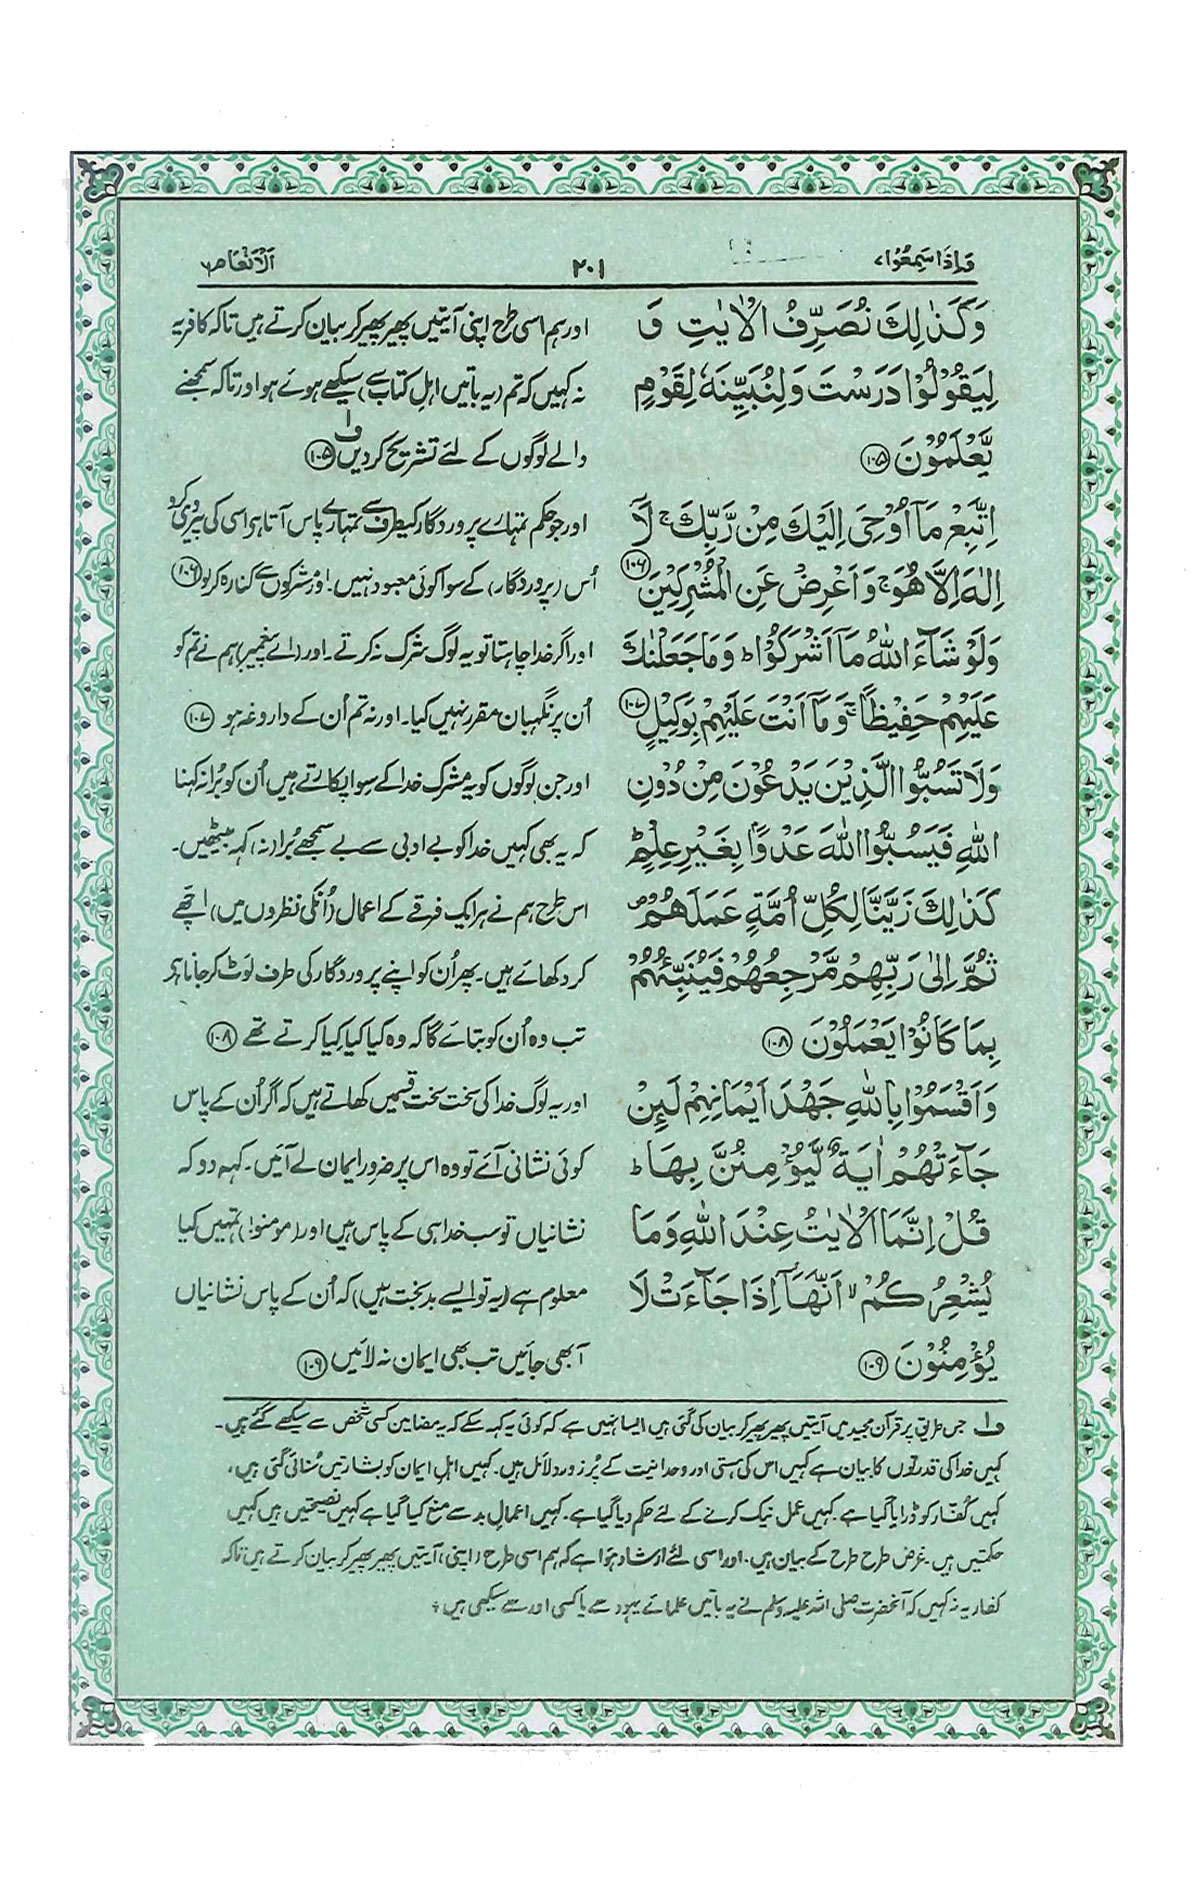 وَاِذَا سَمِعُوْا۷
۲۰۱
اَلْاَنْعَام۶
وَكَذٰلِكَ نُصَرِّفُ الْاٰيٰتِ وَ
لِيَقُوْلُوْا دَرَسْتَ وَلِنُبَيِّنَهٗ لِقَوْمٍ
يَّعْلَمُوْنَ ۱۰۵
اِتَّبِعْ مَاۤ اُوْحِيَ اِلَيْكَ مِنْ رَّبِّكَ ۚ لَاۤ
اِلٰهَ اِلَّا هُوَ ۚ وَاَعْرِضْ عَنِ الْمُشْرِكِيْنَ ۱۰۶
وَلَوْ شَآءَ اللّٰهُ مَاۤ اَشْرَكُوْا ؕ وَمَا جَعَلْنٰكَ
عَلَيْهِمْ حَفِيْظًا ۚ وَمَاۤ اَنْتَ عَلَيْهِمْ بِوَكِيْلٍ ۱۰۷
وَلَا تَسُبُّوا الَّذِيْنَ يَدْعُوْنَ مِنْ دُوْنِ
اللّٰهِ فَيَسُبُّوا اللّٰهَ عَدْوًاۢ بِغَيْرِ عِلْمٍ ؕ
كَذٰلِكَ زَيَّنَّا لِكُلِّ اُمَّةٍ عَمَلَهُمْ ۪
ثُمَّ اِلٰى رَبِّهِمْ مَّرْجِعُهُمْ فَيُنَبِّئُهُمْ
بِمَا كَانُوْا يَعْمَلُوْنَ ۱۰۸
وَاَقْسَمُوْا بِاللّٰهِ جَهْدَ اَيْمَانِهِمْ لَئِنْ
جَآءَتْهُمْ اٰيَةٌ لَّيُؤْمِنُنَّ بِهَا ؕ
قُلْ اِنَّمَا الْاٰيٰتُ عِنْدَ اللّٰهِ وَمَا
يُشْعِرُكُمْ ۙ اَنَّهَاۤ اِذَا جَآءَتْ لَا
يُؤْمِنُوْنَ ۱۰۹
اور ہم اسی طرح اپنی آیتیں پھیر پھیر کر بیان کرتے ہیں تاکہ کافر یہ
نہ کہیں کہ تم (یہ باتیں اہلِ کتاب سے) سیکھے ہوئے ہو اور تاکہ سمجھنے
والے لوگوں کے لئے تشریح کردیں ف۱ ۱۰۵
اور جو حکم تمہارے پروردگار کیطرف سے تمہارے پاس آتا ہے اسی کی پیروی کرو
اُس (پروردگار) کے سوا کوئی معبود نہیں۔ اور مشرکوں سے کنارہ کرلو ۱۰۶
اور اگر خدا چاہتا تو یہ لوگ شرک نہ کرتے۔ اور (اے پیغمبر) ہم نے تم کو
اُن پر نگہبان مقرر نہیں کیا۔ اور نہ تم اُن کے داروغہ ہو ۱۰۷
اور جن لوگوں کو یہ مشرک خدا کے سوا پکارتے ہیں اُن کو بُرا نہ کہنا
کہ یہ بھی کہیں خدا کو بے ادبی سے بے سمجھے بُرا (نہ) کہہ بیٹھیں۔
اس طرح ہم نے ہر ایک فرقے کے اعمال (اُنکی نظروں میں) اچھّے
کر دکھائے ہیں۔ پھر اُن کو اپنے پروردگار کی طرف لوٹ کر جانا ہے
تب وہ اُن کو بتائے گا کہ وہ کیا کیا کِیا کرتے تھے ۱۰۸
اور یہ لوگ خدا کی سخت سخت قسمیں کھاتے ہیں کہ اگر اُن کے پاس
کوئی نشانی آئے تو وہ اس پر ضرور ایمان لے آئیں۔ کہہ دو کہ
نشانیاں تو سب خدا ہی کے پاس ہیں اور (مومنو!) تمہیں کیا
معلوم ہے (یہ تو ایسے بدبخت ہیں) کہ اُن کے پاس نشانیاں
آبھی جائیں تب بھی ایمان نہ لائیں ۱۰۹
ف۱ جس طریق پر قرآن مجید میں آیتیں پھیر پھیر کر بیان کی گئی ہیں ایسا نہیں ہے کہ کوئی یہ کہہ سکے کہ یہ مضامین کسی شخص سے سیکھے گئے ہیں۔
کہیں خدا کی قدرتوں کا بیان ہے کہیں اس کی ہستی اور وحدانیت کے پُرزور دلائل ہیں۔ کہیں اہلِ ایمان کو بشارتیں سُنائی گئی ہیں،
کہیں کُفّار کو ڈرایا گیا ہے۔ کہیں عمل نیک کرنے کے لئے حکم دیا گیا ہے۔ کہیں اعمالِ بد سے منع کیا گیا ہے کہیں نصیحتیں ہیں کہیں
حکمتیں ہیں۔ غرض طرح طرح کے بیان ہیں۔ اور اسی لئے ارشاد ہوا ہے کہ ہم اسی طرح (اپنی) آیتیں پھیر پھیر کر بیان کرتے ہیں تاکہ
کفار یہ نہ کہیں کہ آنحضرت صلی اللہ علیہ وسلم نے یہ باتیں علمائے یہود سے یا کسی اور سے سیکھی ہیں ٭